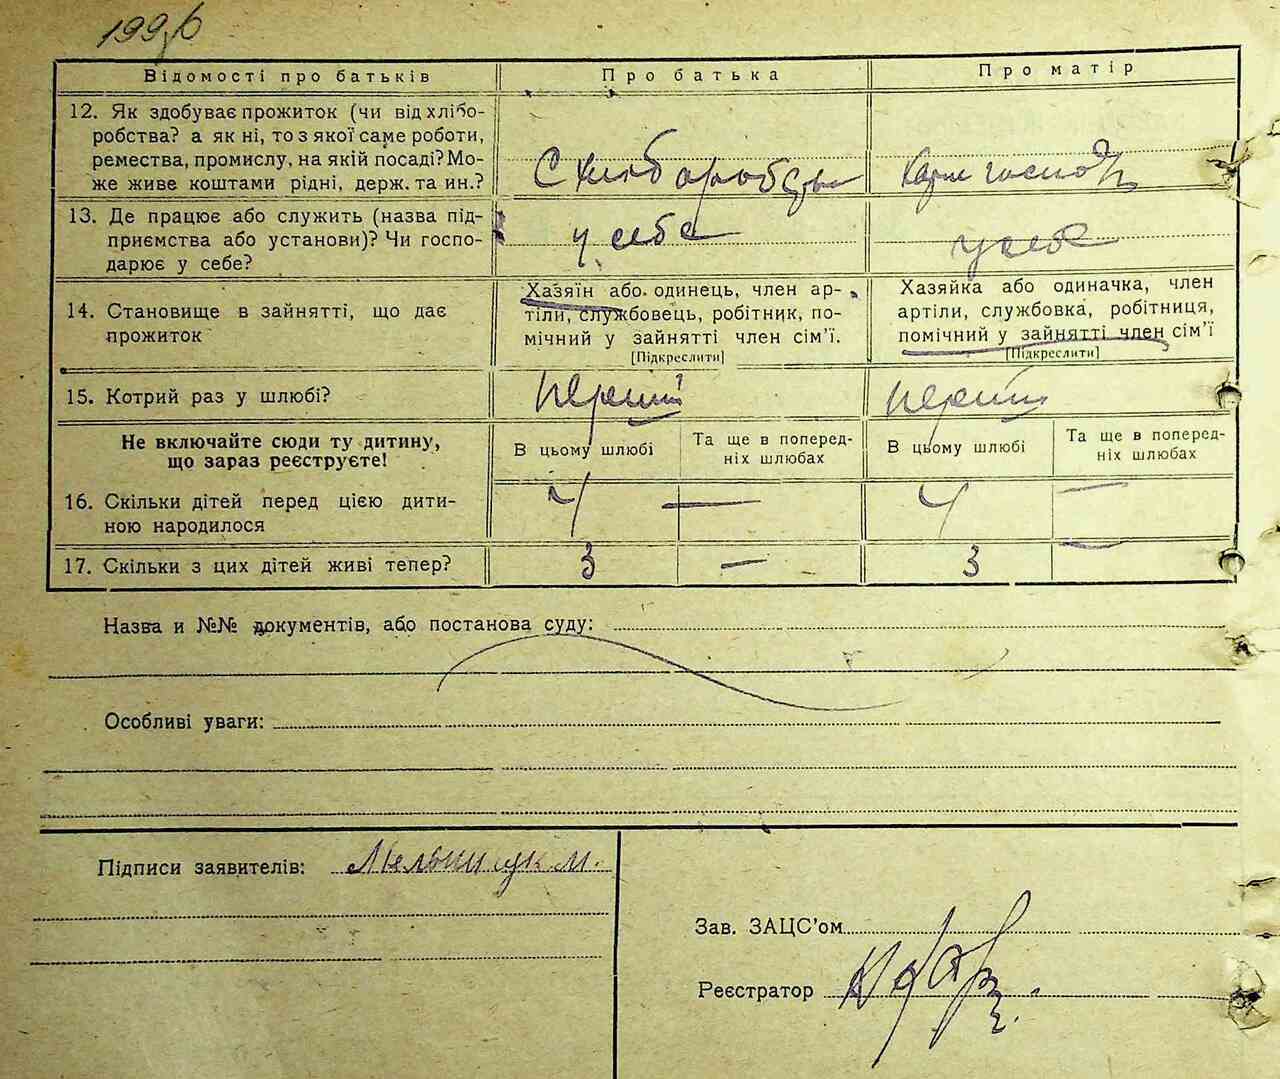 Відомості про батьків
Про батька
Про матір
12. Як здобуває прожиток (чи від хлібо-
робства? а як ні, то з якої саме роботи,
ремества, промислу, на якій посаді? Мо-
же живе коштами рідні, держ. та ин.?
С хліборобства
13. Де працює або служить (назва під-
приємства або установи)? Чи госпо-
дарює у себе?
у себе
у себе
14. Становище в зайнятті, що дає
прожиток
Хазяїн або одинець, член ар-
тіли, службовець, робітник, по-
мічний у зайнятті член сім'ї.
[Підкреслити]
Хазяйка або одиначка, член
артіли, службовка, робітниця,
помічний у зайнятті член сім'ї
[Підкреслити]
15. Котрий раз у шлюбі?
перший
перший
Не включайте сюди ту дитину,
що зараз реєструєте!
В цьому шлюбі
Та ще в поперед-
ніх шлюбах
В цьому шлюбі
Та ще в поперед-
ніх шлюбах
16. Скільки дітей перед цією дити-
ною народилося
4 — 4 —
17. Скільки з цих дітей живі тепер?
3 — 3 —
Назва и №№ документів, або постанова суду:
Особливі уваги:
Підписи заявителів: Мельничук М.
Зав. ЗАЦС'ом
Реєстратор